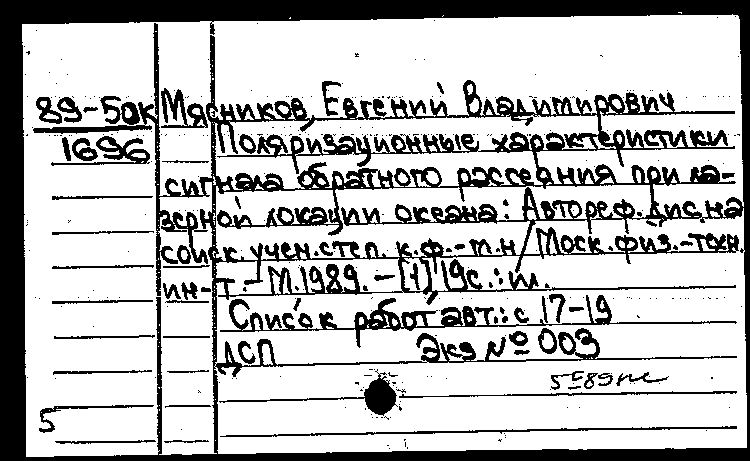 89-5дк Мясников, Евгений Владимирович
1696 Поляризационные характеристики
сигнала обратного рассеяния при ла-
зерной локации океана: Автореф. дис. на
соиск. учен. степ. к.ф.-м.н / Моск. физ.-техн.
ин-т. - М. 1989. - [1] 19с.: ил.
Список работ авт.: с. 17-19
ДСП Экз № 003
5